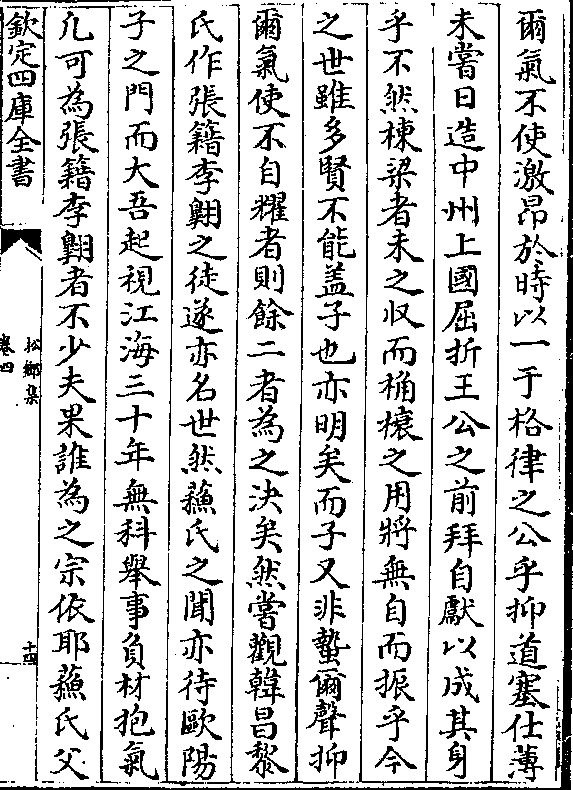 爾氣不使激昂於時以一于格律之公乎抑道塞仕薄
未嘗日造中州上國屈折王公之前拜自獻以成其身
乎不然棟梁者未之收而桷榱之用將無自而振乎今
之世雖多賢不能盖子也亦明矣而子又非蟄爾聲抑
爾氣使不自耀者則餘二者為之決矣然嘗觀韓昌黎
氏作張籍李翺之徒遂亦名世然蘓氏之聞亦待歐陽
子之門而大吾起視江海三十年無科舉事負材抱氣
凢可為張籍李翺者不少夫果誰為之宗依耶蘓氏父
欽定四庫全書
松鄉集
卷四
十四